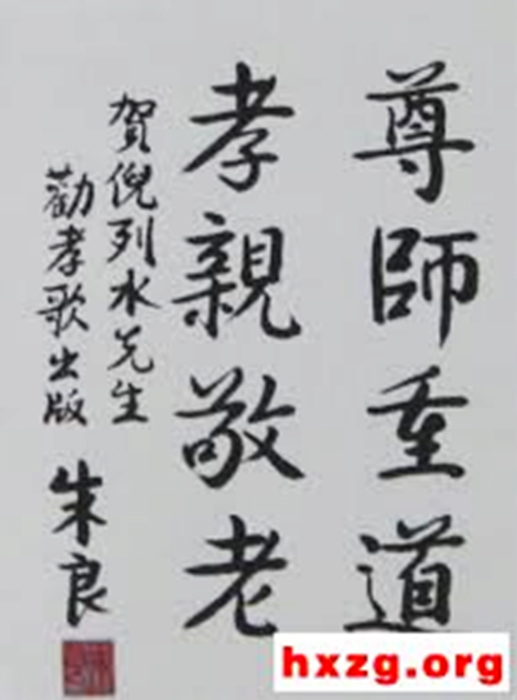 尊師重道
孝親敬老
賀倪列水先生
勸孝歌出版
朱良
hxzg.org